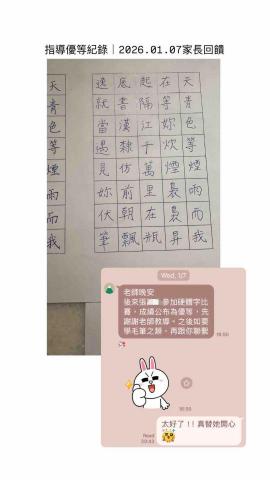 指導優等紀錄｜2026.01.07家長回饋
天青色等煙雨而我
在等妳炊煙裊裊昇
起隔江千萬里在瓶
底書漢隸仿前朝飄
逸就當遇見妳伏筆
天青色等煙雨而我
Wed, 1/7
老師晚安
後來張 參加硬體字比
賽，成績公布為優等，先
謝謝老師教導。之後如要
學毛筆之類，再跟你聯繫
太好了!! 真替她開心
Read